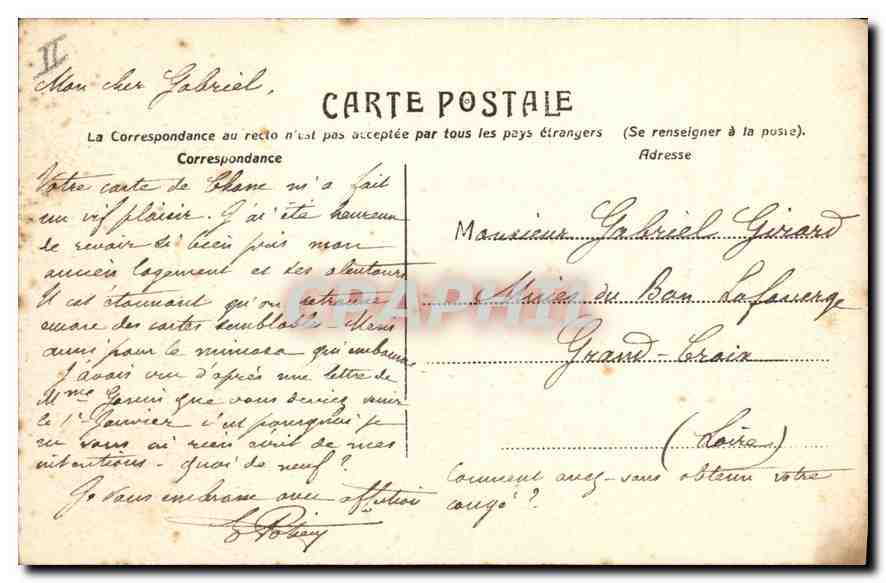 II
Mon cher Gabriel,
CARTE POSTALE
La Correspondance au recto n'est pas acceptée par tous les pays étrangers (Se renseigner à la poste).
Correspondance
Adresse
Votre carte de m'a fait
un vif plaisir. J'ai été heureux
de revoir si bien pris mon
ancien logement et ses alentours
Il est étonnant qu'on retrouve
encore des cartes semblables. Merci
aussi pour le mimosa qui embaume
J'avais cru d'après une lettre de
Mme que vous deviez venir
le 1er Janvier c'est pourquoi je
ne vous ai rien écrit de mes
intentions - quoi de neuf?
Je vous embrasse avec affection
Monsieur Gabriel Girard
Mines du Ban Lafaverge
Grand-Croix
(Loire)
Comment avez-vous obtenu votre
congé?
CPAPHIL